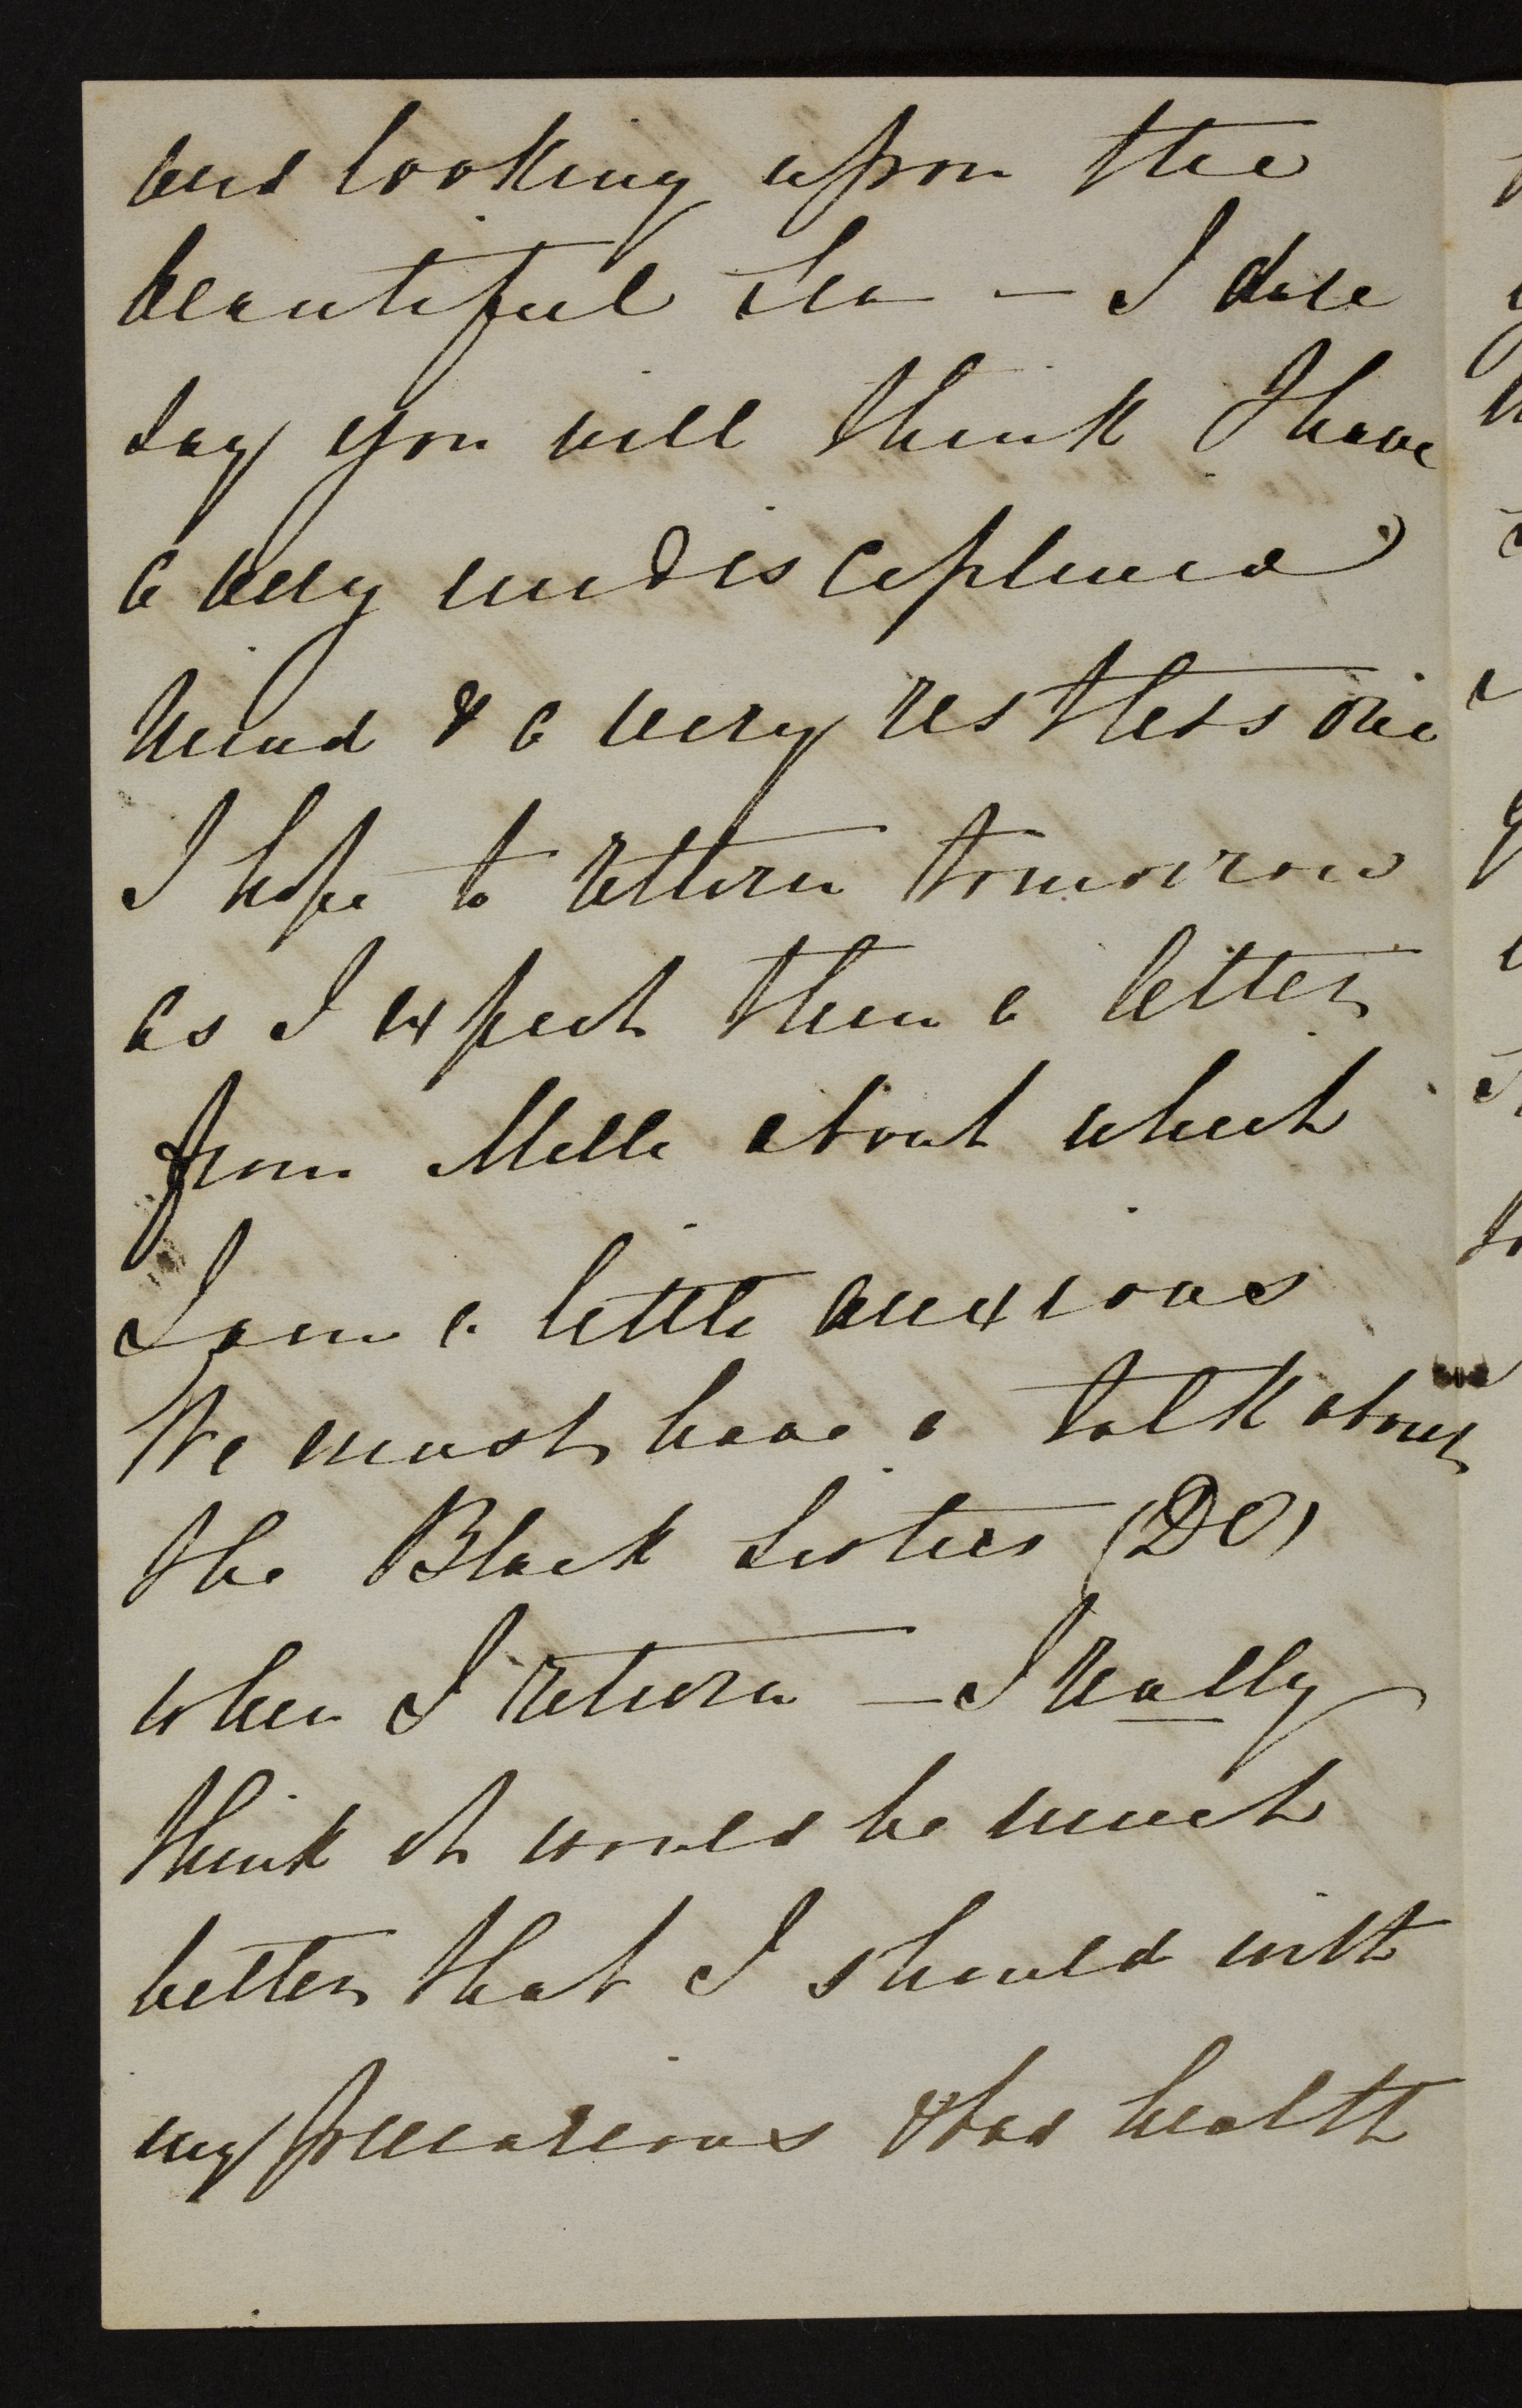 and looking upon the
beautiful sea — I dare
say you will think I have
a very undisciplined
mind & a very restless one
I hope to return tomorrow
as I expect then a letter
from Melle about which
I am a little anxious
We must have a talk about
the Black Sisters (DV)
when I return — I really
think it would be much
better that I should with
my precarious & bad health